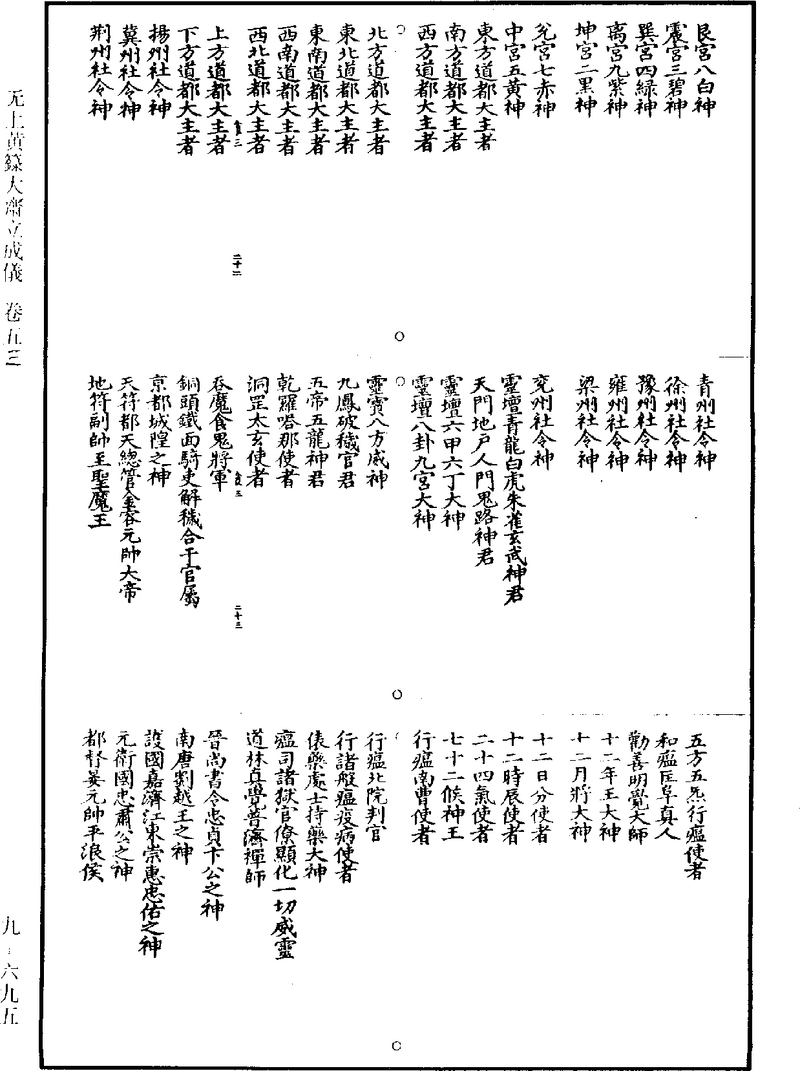 艮宮八白神
震宮三碧神
巽宮四綠神
离宮九紫神
坤宮二黑神
兌宮七赤神
中宮五黃神
東方道都大主者
南方道都大主者
西方道都大主者
北方道都大主者
東北道都大主者
東南道都大主者
西南道都大主者
西北道都大主者
上方道都大主者
下方道都大主者
揚州社令神
冀州社令神
荆州社令神
二十二
青州社令神
徐州社令神
豫州社令神
雍州社令神
梁州社令神
兗州社令神
靈壇青龍白虎朱雀玄武神君
天門地戶人門鬼路神君
靈壇六甲六丁大神
靈壇八卦九宮大神
靈寶八方威神
九鳳破穢官君
五帝五龍神君
乾羅嗒那使者
洞罡太玄使者
吞魔食鬼將軍
銅頭鐵面騎吏解穢合干官屬
京都城隍之神
天符都天總管金容元帥大帝
地符副帥至聖魔王
二十三
五方五炁行瘟使者
和瘟匡阜真人
勸善明覺大師
十二年王大神
十二月將大神
十二日分使者
十二時辰使者
二十四氣使者
七十二候神王
行瘟南曹使者
行瘟北院判官
行諸般瘟疫病使者
俵藥處士持藥大神
瘟司諸獄官僚顯化一切威靈
道林真覺普濟禪師
晉尚書令忠貞卞公之神
南唐劉越王之神
護國嘉濟江東崇惠忠佑之神
元衛國忠肅公之神
都督晏元帥平浪侯
无上黃籙大齋立成儀 卷五三
九·六九五